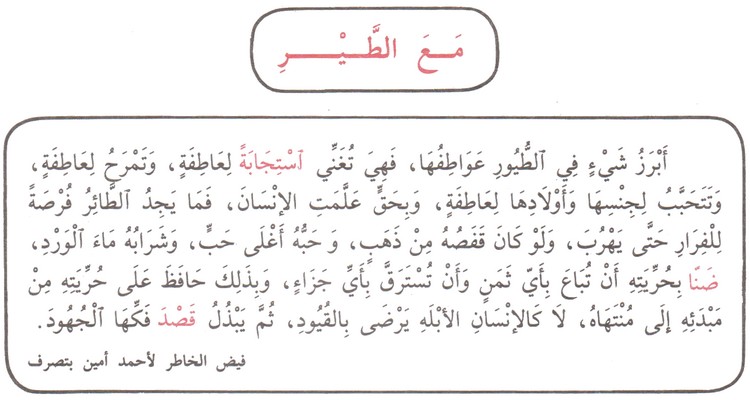 مَـعَ الطَّـيْـرِ
أَبْرَزُ شَيْءٍ فِي ٱلطُّيُورِ عَوَاطِفُهَا، فَهِيَ تُغَنِّي ٱسْتِجَابَةً لِعَاطِفَةٍ، وَتَمْرَحُ لِعَاطِفَةٍ،
وَتَتَحَبَّبُ لِجِنْسِهَا وَأَوْلَادِهَا لِعَاطِفَةٍ، وَبِحَقٍّ عَلَّمَتِ الإنْسَانَ، فَمَا يَجِدُ ٱلطَّائِرُ فُرْصَةً
لِلْفِرَارِ حَتَّى يَهْرُبَ، وَلَوْ كَانَ قَفَصُهُ مِنْ ذَهَبٍ، وَ حَبُّهُ أَغْلَى حَبٍّ، وَشَرَابُهُ مَاءَ ٱلْوَرْدِ،
ضَنًّا بِحُرِّيَتِهِ أَنْ تُبَاعَ بِأَيِّ ثَمَنٍ وَأَنْ تُسْتَرَقَّ بِأَيِّ جَزَاءٍ، وَبِذَلِكَ حَافَظَ عَلَى حُرِّيَتِهِ مِنْ
مَبْدَئِهِ إِلَى مُنْتَهَاهُ، لَا كَالإنْسَانِ الأَبْلَهِ يَرْضَى بِالقُيُودِ، ثُمَّ يَبْذُلُ قَصْدَ فَكِّهَا ٱلْجُهُودَ.
فيض الخاطر لأحمد أمين بتصرف